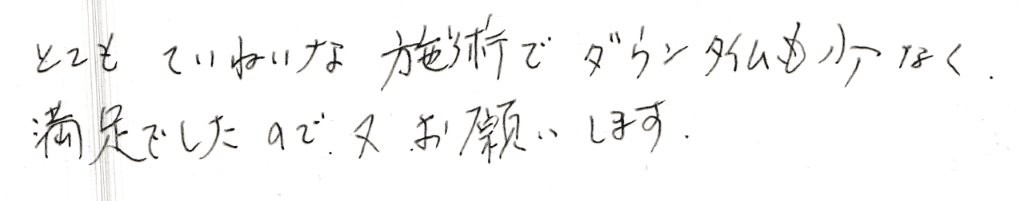 とても ていねいな 施術で ダウンタイムも少なく.
満足でしたので.又.お願いします.